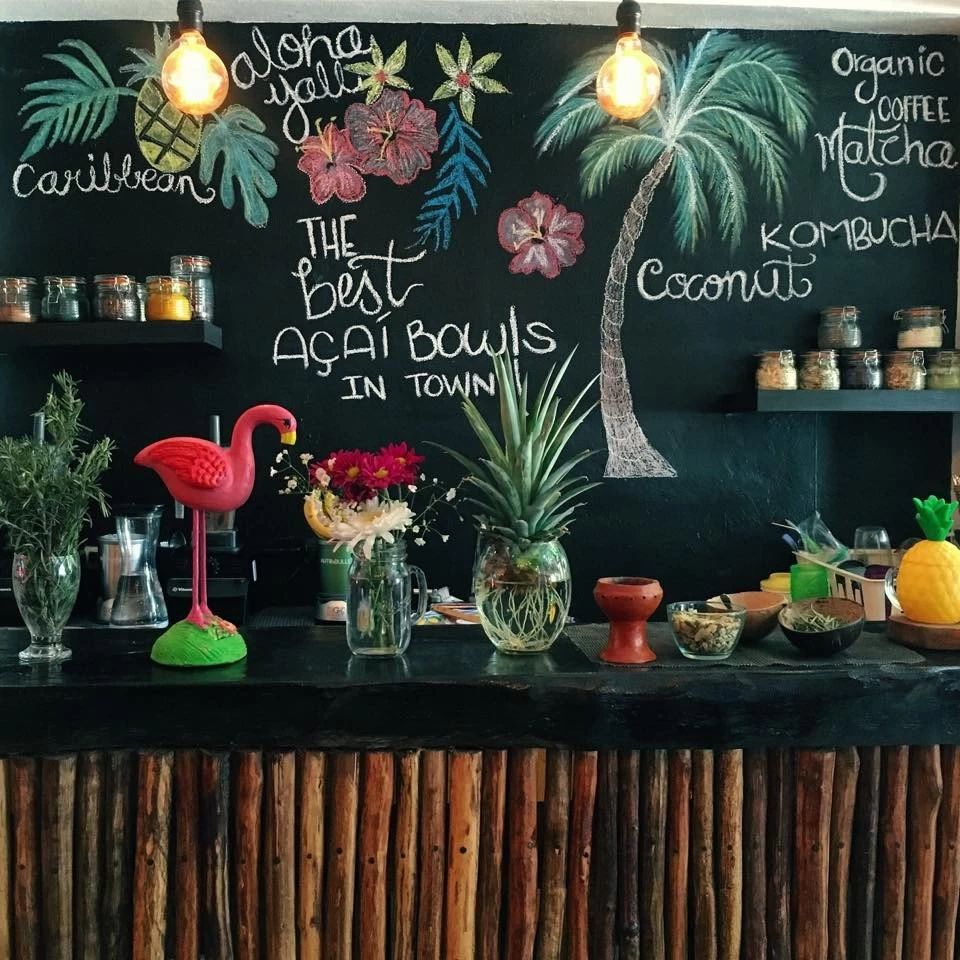 aloha
yall
Caribbean
THE
Best
AÇAÍ Bowls
IN TOWN
Organic
COFFEE
Matcha
KOMBUCHA
Coconut